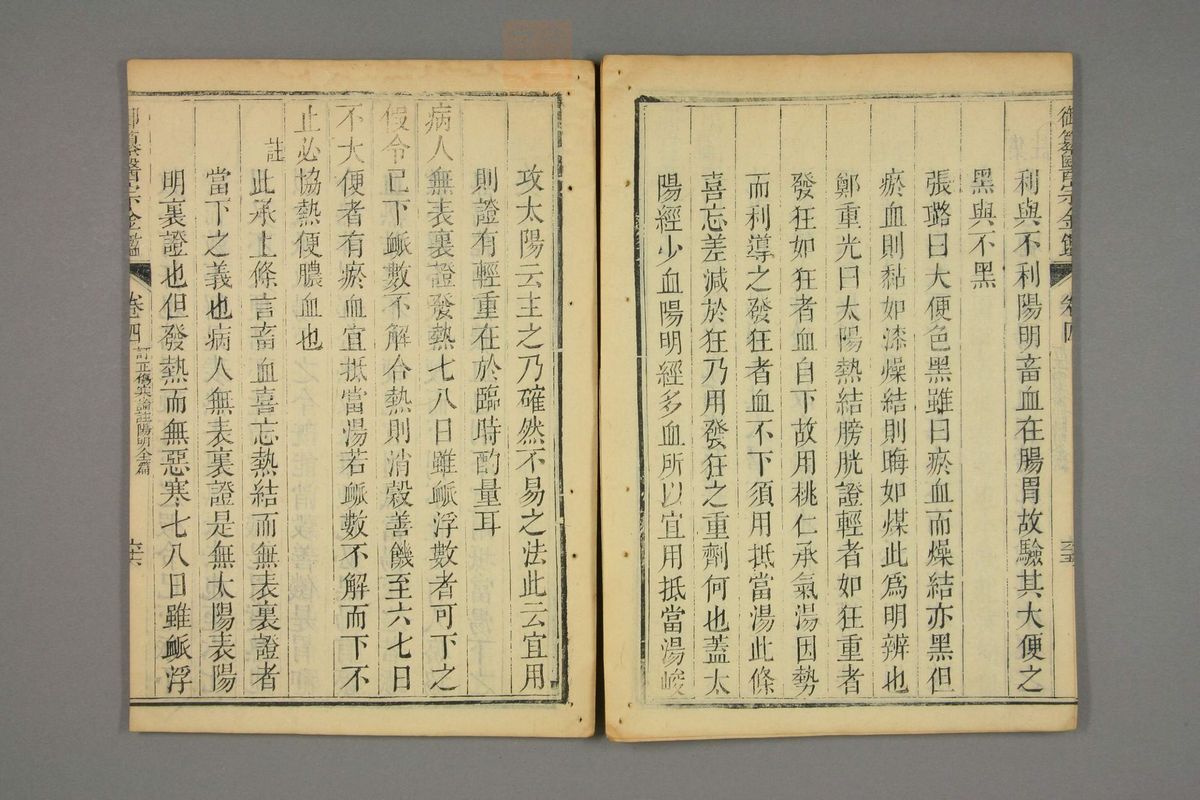 御纂醫宗金鑑 卷四 六五
利與不利陽明畜血在腸胃故驗其大便之
黑與不黑
張璐曰大便色黑雖曰瘀血而燥結亦黑但
瘀血則黏如漆燥結則晦如煤此爲明辨也
鄭重光曰太陽熱結膀胱證輕者如狂重者
發狂如狂者血自下故用桃仁承氣湯因勢
而利導之發狂者血不下須用抵當湯此條
喜忘差減於狂乃用發狂之重劑何也蓋太
陽經少血陽明經多血所以宜用抵當湯峻
攻太陽云主之乃確然不易之法此云宜用
則證有輕重在於臨時酌量耳
病人無表裏證發熱七八日雖脈浮數者可下之
假令已下脈數不解合熱則消穀善饑至六七日
不大便者有瘀血宜抵當湯若脈數不解而下不
止必協熱便膿血也
註此承上條言畜血喜忘熱結而無表裏證者
當下之義也病人無表裏證是無太陽表陽
明裏證也但發熱而無惡寒七八日雖脈浮
御纂醫宗金鑑 卷四 訂正傷寒論註陽明全篇 六六